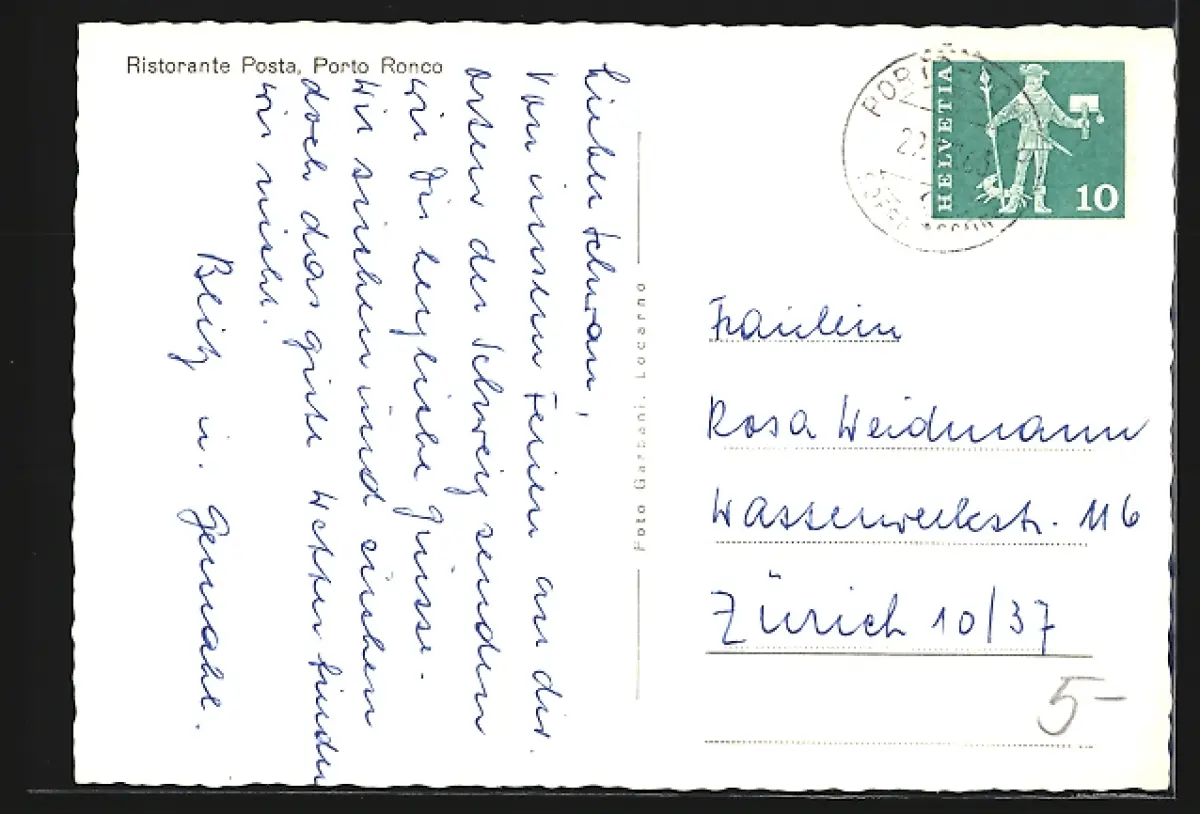 Ristorante Posta, Porto Ronco
Lieber Schwan,
Von unsern Ferien an der
der Schweiz senden
wir Dir herzliche Grüsse.
Wir suchen und suchen
doch das gute Wetter finden
wir nicht.
Blitz u. Gemahl.
Foto Garbani, Locarno
HELVETIA
10
Fräulein
Rosa Weidmann
Wasserwerkstr. 116
Zürich 10/37
5-